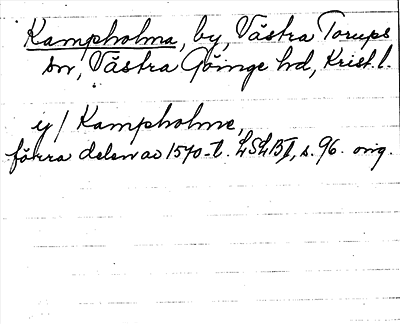 Kampholma, by, Västra Torups
sn, Västra Göinge hd, Krist. l.
y/ Kampholme,
förra delen av 1570-t. LSLB I, s. 96. orig.